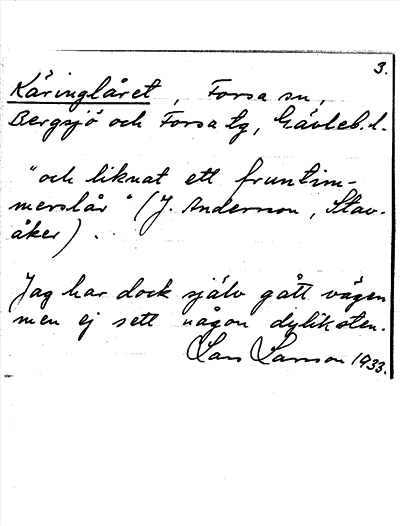 3.
Käringlåret, Forsa sn,
Bergsjö och Forsa tg, Gävleb.l.
"och liknat ett fruntim-
merslår" (J. Anderson, Stav-
åker).
Jag har dock själv gått vägen
men ej sett någon dylik sten.
Lars Larsson 1933.